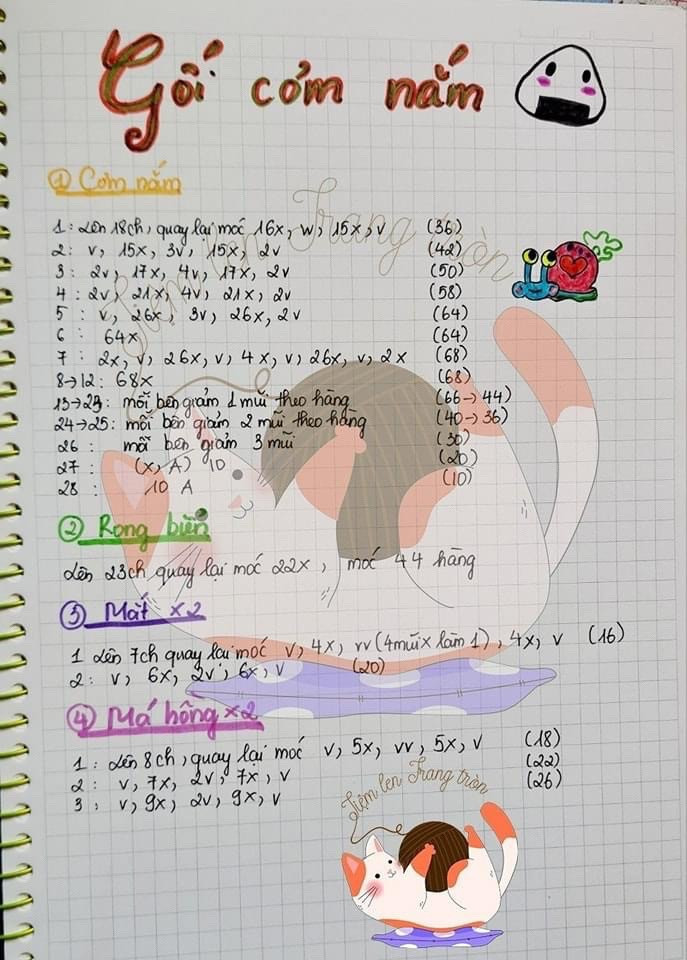 Gối cơm nắm
① Cơm nắm
1: Lên 18ch, quay lại móc 16x, w, 15x, v (36)
2: v, 15x, 3v, 15x, 2v (42)
3: 2v, 17x, 4v, 17x, 2v (50)
4: 2v, 21x, 4v, 21x, 2v (58)
5: v, 26x, 3v, 26x, 2v (64)
6: 64x (64)
7: 2x, v, 26x, v, 4x, v, 26x, v, 2x (68)
8→12: 68x (68)
13→23: mỗi bên giảm 1 mũi theo hàng (66→44)
24→25: mỗi bên giảm 2 mũi theo hàng (40→36)
26: mỗi bên giảm 3 mũi (30)
27: (x, A) 10 (20)
28: 10 A (10)
② Rong biển
Lên 23ch quay lại móc 22x, móc 44 hàng
③ Mắt x2
1 Lên 7ch quay lại móc v, 4x, vv (4mũi x làm 1), 4x, v (16)
2: v, 6x, 2v, 6x, v (20)
④ Má hồng x2
1: Lên 8ch, quay lại móc v, 5x, vv, 5x, v (18)
2: v, 7x, 2v, 7x, v (22)
3: v, 9x, 2v, 9x, v (26)
Tiệm len Trang tròn
Tiệm len Trang tròn